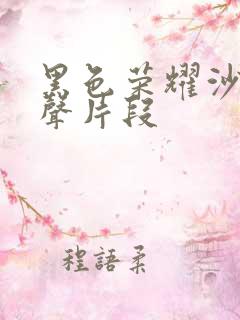 黑色荣耀沙
聲片段
程語柔